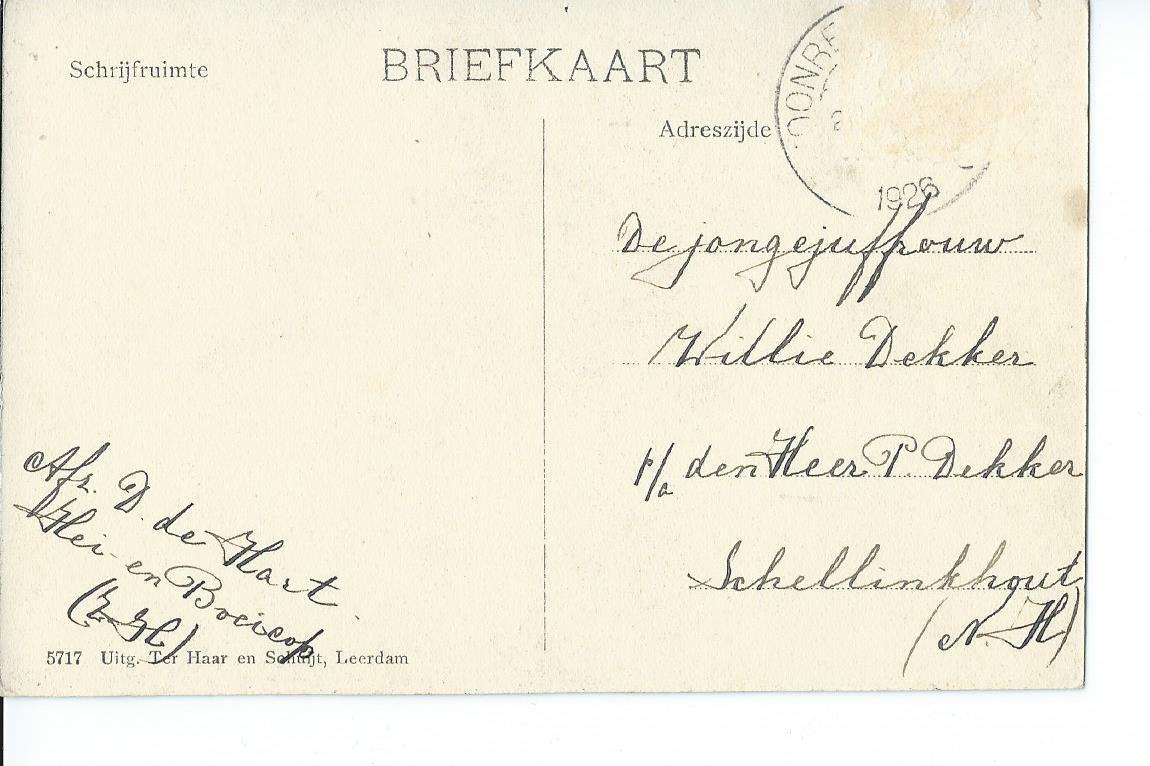 Schrijfruimte
BRIEFKAART
Adreszijde
OONRE
1926
De jongejuffrouw
Willie Dekker
p/a den Heer P. Dekker
Schellinkhout
(N. H)
Afz. D. de Hart.
Hei- en Boeicop
(Z H)
5717 Uitg. Ter Haar en Schuijt, Leerdam